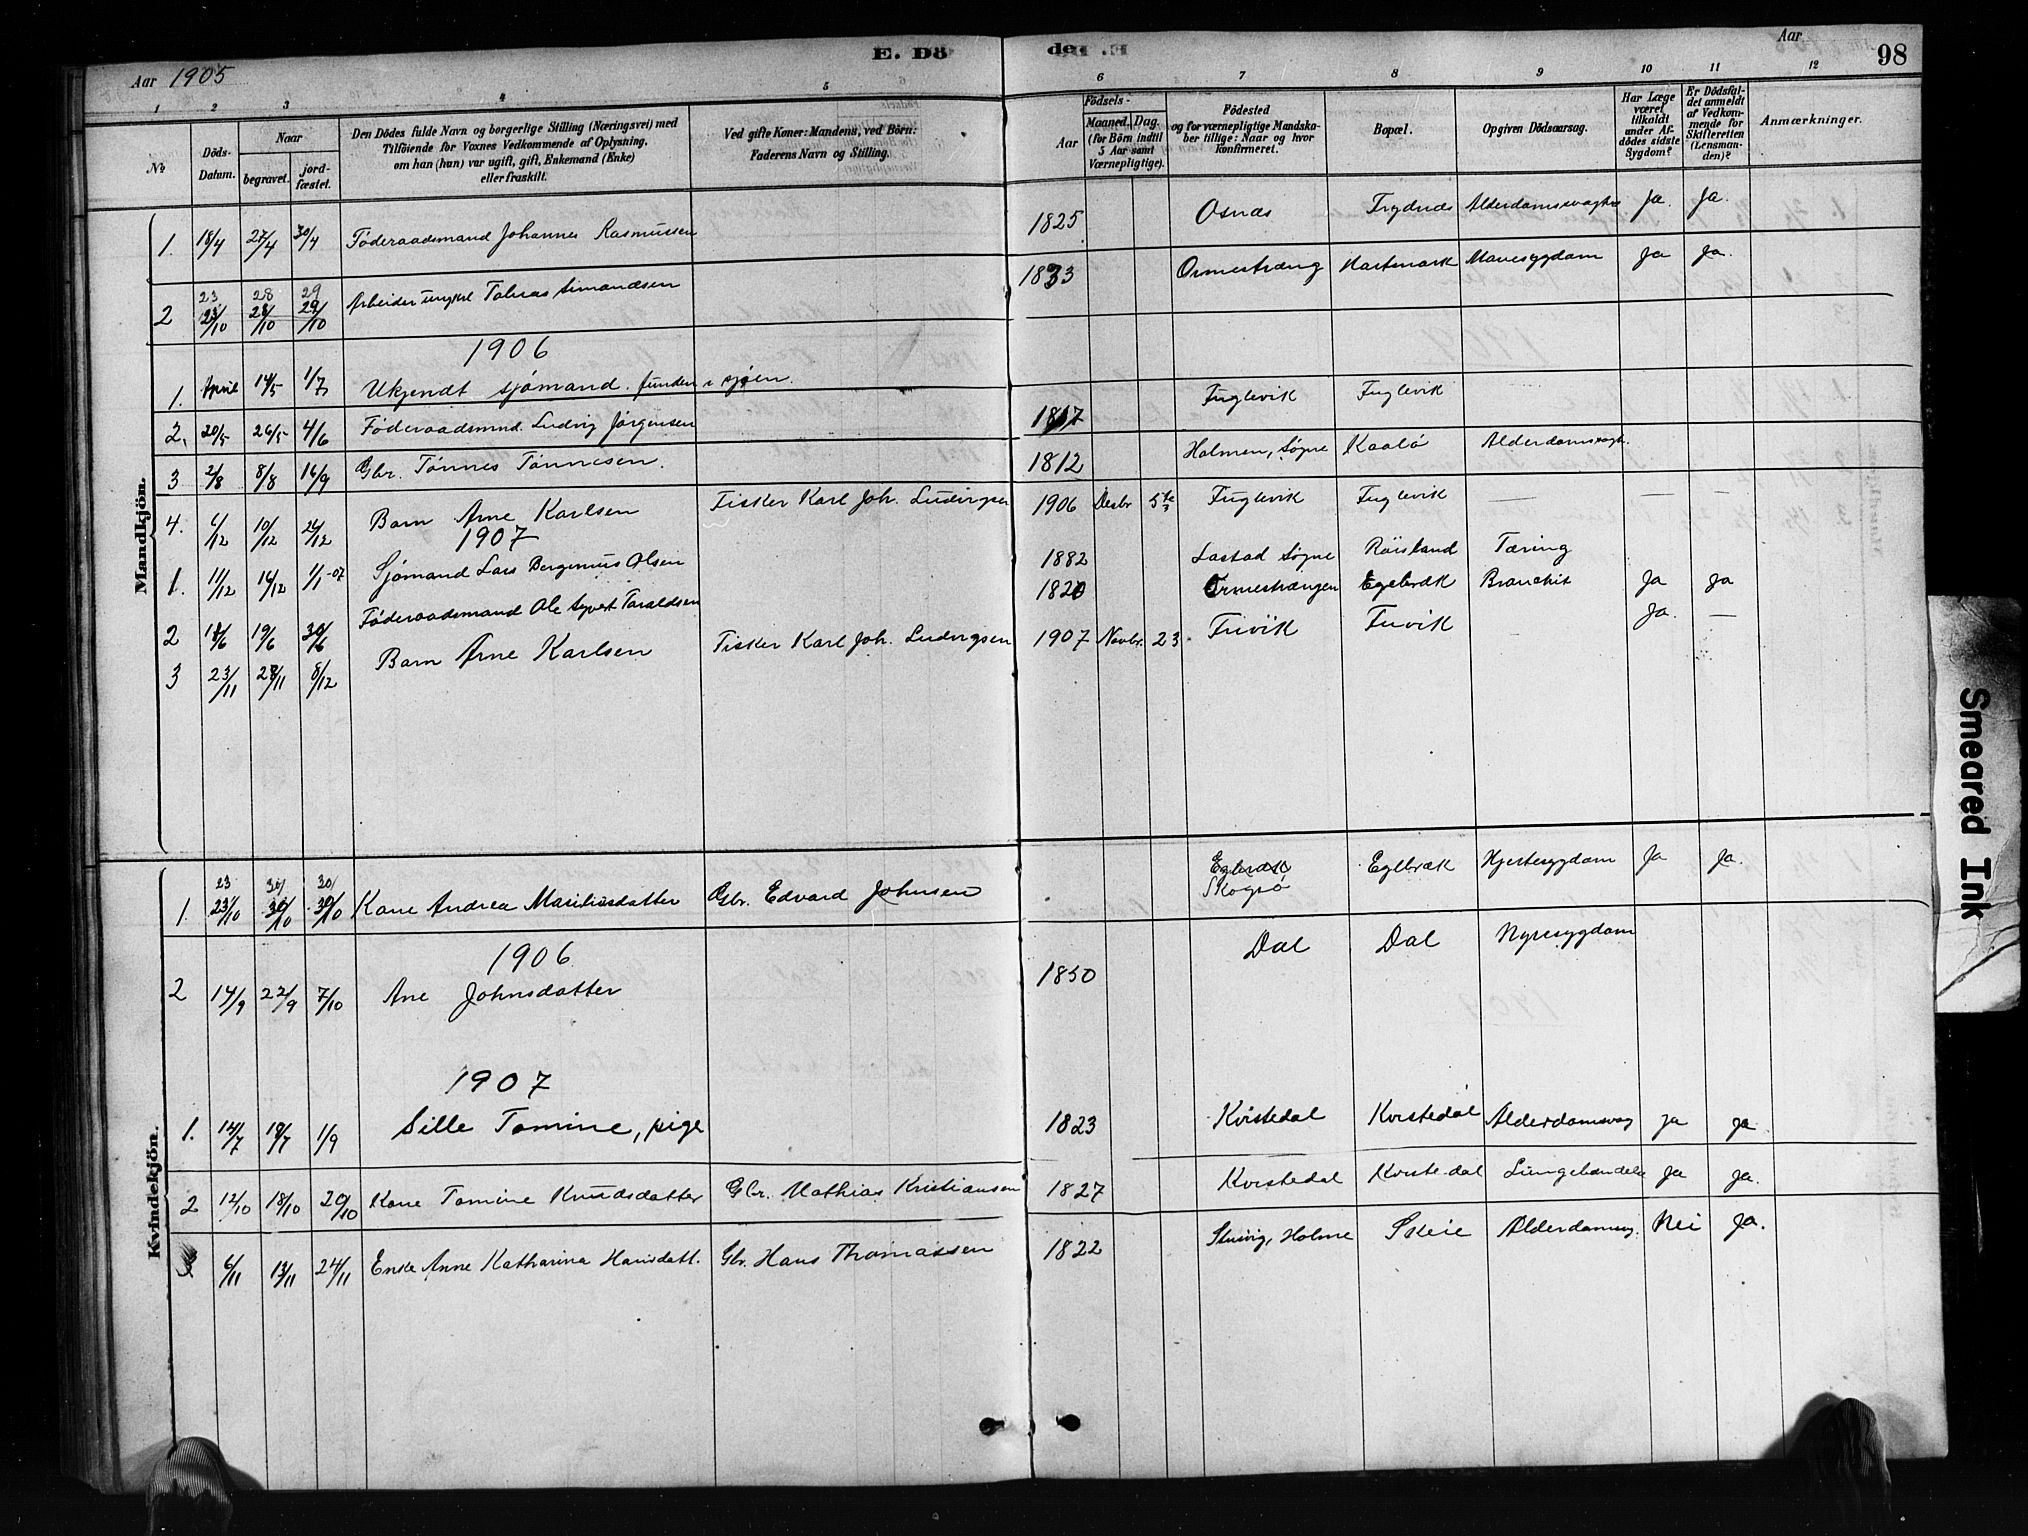 Aar 1905
E. Dö
den .E
Aar
98
1 2 3 4 5 6 7 8 9 10 11 12
No
Döds-Datum.
Naar
begravet.
jord-fæstet.
Den Dödes fulde Navn og borgerlige Stilling (Næringsvei) med
Tilföiende for Voxnes Vedkommende af Oplysning,
om han (hun) var ugift, gift, Enkemand (Enke)
eller fraskilt.
Ved gifte Koner: Mandens, ved Börn:
Faderens Navn og Stilling.
Födsels-
Aar
Maaned. Dag.
(for Börn indtil
5 Aar samt
Værnepligtige).
Födested
og for værnepligtige Mandska-
ber tillige: Naar og hvor
konfirmeret.
Bopæl.
Opgiven Dödsaarsag.
Har Læge
været
tilkaldt
under Af-
dödes sidste
Sygdom?
Er Dödsfal-
det anmeldt
af Vedkom-
mende for
Skifteretten
(Lensman-
den)?
Anmærkninger.
Mandkjön.
1. 18/4 27/4 30/4 Föderaadsmand Johannes Rasmussen 1825 Osnæs Trydnæs Alderdomssvaghe Ja. Ja.
2 23/10 28/10 29/10 Arbeider ungkar Tobias Amandsen 1833 Ormestræng Hartmark Mavesygdom Ja Ja.
1906
1. April 14/5 1/7 Ukjendt sjömand funden i sjøen. Fuglevik Fuglevik
2. 20/5 26/5 4/6 Föderaadsmnd. Ludvig Jørgensen 1817
3 2/8 8/8 16/9 Gbr. Tønnes Tønnesen. 1812 Holmen, Søgne Kaalö Alderdomsvagh.
4. 6/12 10/12 26/12 Barn Arne Karlsen Fisker Karl Joh. Ludvigsen 1906 Desbr 5te Fuglevik Fuglevik — — —
1907
1. 11/12 16/12 1/1-07 Sjömand Lars Bergenius Olsen 1882 Lastad Søgne Röisland Tæring
2 14/6 19/6 30/6 Föderaadsmand Ole Syvert Taraldsen 1820 Ormestrængen Egebræk Bronchit Ja Ja
3 23/11 28/11 8/12 Barn Arne Karlsen Fisker Karl Joh. Ludvigsen 1907 Novbr. 23 Fuvik Fuvik — Ja. —
Kvindekjön.
1. 23/10 30/10 30/10 Kone Andrea Masiliusdatter Gbr. Edvard Johnsen Egbræk Skogsö Egebræk Hjertesygdom Ja Ja.
1906
2 14/9 22/9 7/10 Ane Johnsdatter 1850 Dal Dal Nyresygdom
1907
1. 12/7 19/7 1/9 Sille Tomine, pige 1823 Kvistedal Kvistedal Alderdomsvag Ja Ja
2 12/10 18/10 20/10 Kone Tomine Knudsdatter Gbr. Mathias Kristiansen 1827 Kvistedal Kvistedal Lungebændelse Ja Ja.
6/11 13/11 24/11 Enke Anne Katharina Hansdatt. Gbr. Hans Thomassen 1822 Holme Skeie Alderdomsv Nei Ja.
Smeared Ink